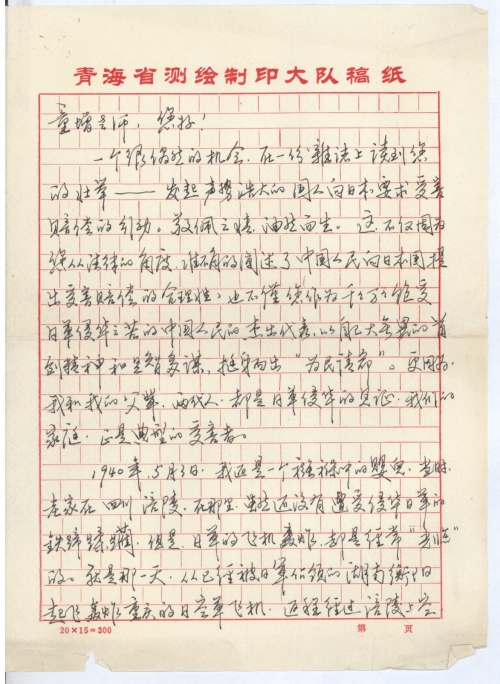 青海省测绘制印大队稿纸
童增老师,您好!
一个很偶然的机会,在一份雜誌上读到您
的壮举——发起声势浩大的国人向日本要求受害
赔偿的行动。敬佩之情,油然而生。这不仅因为
您从法律的角度,准确的阐述了中国人民向日本国提
出受害赔偿的合理性;也不僅您作为千千万万饱受
日軍侵华之苦的中国人民的杰出代表,以自己大無畏的
精神和足智多谋,挺身而出“为民請命”。更因为,
我和我的父辈,两代人,都是日軍侵华的见证,我们的
家庭,正是典型的受害者。
1940年,5月3日,我还是一个襁褓中的嬰兒,当时,
老家在四川涪陵,在那里,虽然还没有遭受侵华日軍的
铁蹄蹂躏,但是,日軍的飞机轰炸,却是经常“光临”
的。就是那一天,从已经被日軍佔领的湖南衡阳
起飞轰炸重庆的日空軍飞机,返程经过涪陵上空
20×15=300
第 页